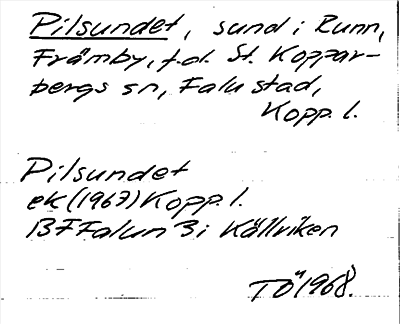 Pilsundet, sund i Runn,
Främby, f.d. St. Koppar-
bergs sn, Falu stad,
Kopp. l.
Pilsundet
ek (1967) Kopp. l.
BF Falun 3 i Källviken
TÖ 1968.